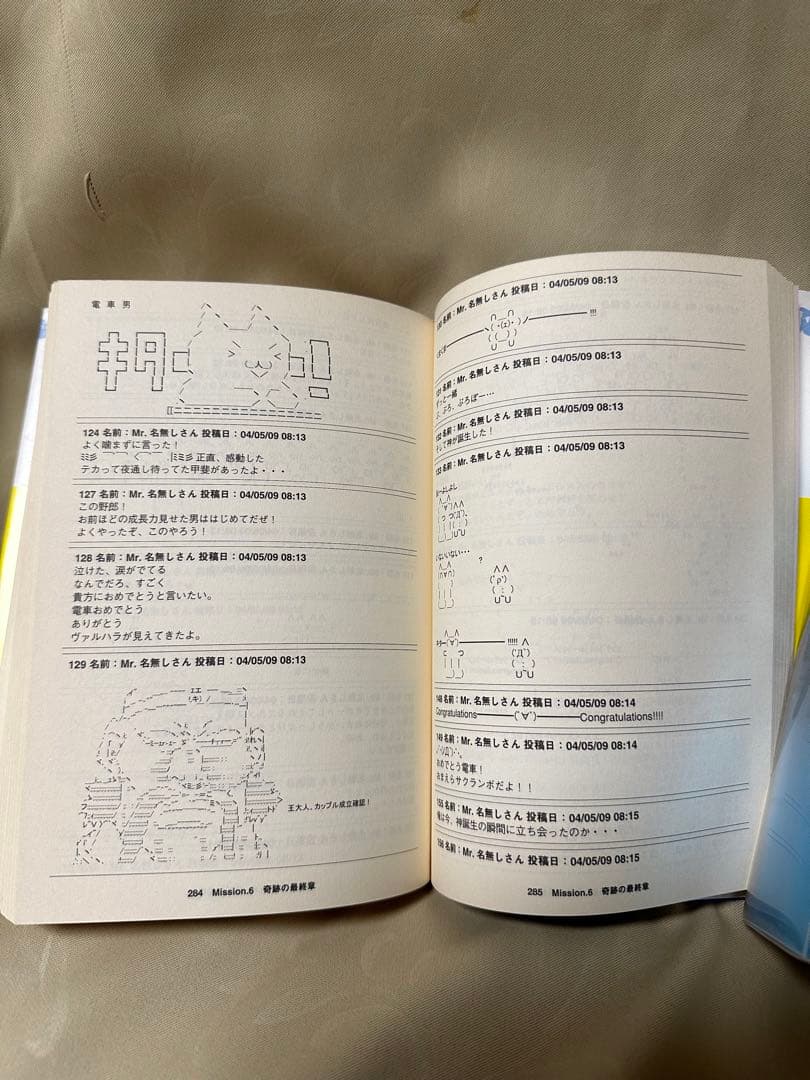 電車男
124 名前：Mr. 名無しさん 投稿日：04/05/09 08:13
よく噛まずに言った！
正直、感動した
テカって夜通し待ってた甲斐があったよ・・・
127 名前：Mr. 名無しさん 投稿日：04/05/09 08:13
この野郎！
お前ほどの成長力見せた男ははじめてだぜ！
よくやったぞ、このやろう！
128 名前：Mr. 名無しさん 投稿日：04/05/09 08:13
泣けた、涙がでてる
なんでだろ、すごく
貴方におめでとうと言いたい。
電車おめでとう
ありがとう
ヴァルハラが見えてきたよ。
129 名前：Mr. 名無しさん 投稿日：04/05/09 08:13
王大人、カップル成立確認！
284 Mission.6 奇跡の最終章
名前：Mr. 名無しさん 投稿日：04/05/09 08:13
!!!
131 名前：Mr. 名無しさん 投稿日：04/05/09 08:13
ずっと一緒
ぶ、ぶろ、ぶろぼー…
132 名前：Mr. 名無しさん 投稿日：04/05/09 08:13
そして神が誕生した！
133 名前：Mr. 名無しさん 投稿日：04/05/09 08:13
よしよし
いないない・・・
?
!!!!!
148 名前：Mr. 名無しさん 投稿日：04/05/09 08:14
Congratulations━━━(ﾟ∀ﾟ)━━━Congratulations!!!!
149 名前：Mr. 名無しさん 投稿日：04/05/09 08:14
おめでとう電車！
おまえらサクランボだよ！！
155 名前：Mr. 名無しさん 投稿日：04/05/09 08:15
俺は今、神誕生の瞬間に立ち会ったのか・・・
156 名前：Mr. 名無しさん 投稿日：04/05/09 08:15
285 Mission.6 奇跡の最終章